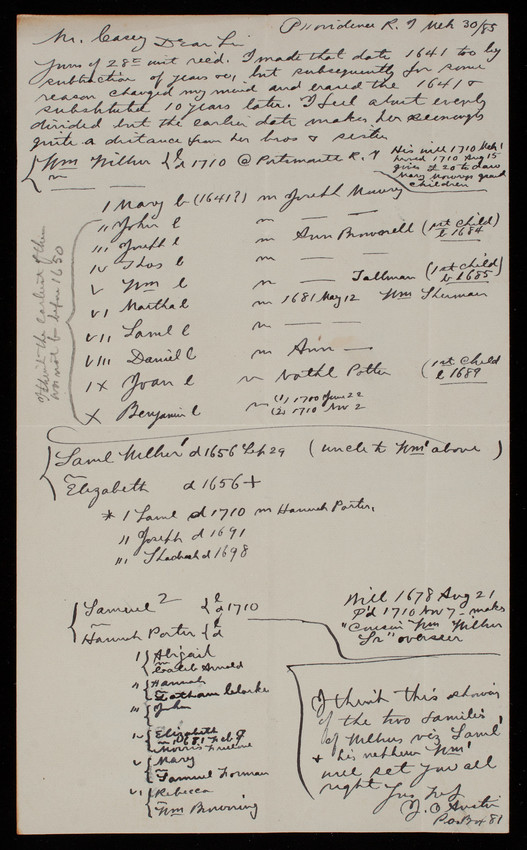 Providence R. I Mch 30/85
Mr. Casey Dear Sir
Yours of 28th inst recd. I made that date 1641 too by
subtraction of years &c, but subsequently for some
reason changed my mind and erased the 1641 &
substituted 10 years later. I feel about evenly
divided but the earlier date makes her seemingly
quite a distance from her bros & sister
Wm Wilbur { b d 1710 @ Portsmouth R. I
m — —
His will 1710 Mch 1
proved 1710 Aug 15
gives £20 to daur
Mary Mowrys grand
children
I think the earliest of them
was not b. before 1650
I Mary b (1641?) m Joseph Mowry
II John b m — —
III Joseph b m Ann Brownell (1st child) b 1684
IV Thos b m — —
V Wm b m — Tallman (1st child) b 1685
VI Martha b m 1681 May 12 Wm Sherman
VII Saml b m — —
VIII Daniel b m Ann —
IX Joan b m Nathl Potter (1st child b 1689
X Benjamin b m (1) 1700 June 22
(2) 1710 Nov 2
Saml Wilbur 1 d 1656 Sep 29 (uncle to Wm 1 above)
m
Elizabeth d 1656+
* I Saml d 1710 m Hannah Porter,
II Joseph d 1691
III Shadrach d 1698
Samuel 2 { b d 1710
m
Hannah Porter { b d
Will 1678 Aug 21
P'd 1710 Nov 7 - makes
"Cousin Wm Wilbur
Sr" overseer
I { Abigail
m
Caleb Arnold
II { Hannah
m
Latham Clarke
III { John
IV { Elizabeth
m 1681 Feb 9
Morris Freelove
V { Mary
m
Samuel Forman
VI { Rebecca
m
Wm Browning
I think this showing
of the two families
of Wilburs viz Saml 1
& his nephew Wm 1
will set you all
right Yrs Resp
J. O Austin
P.O. Box 81